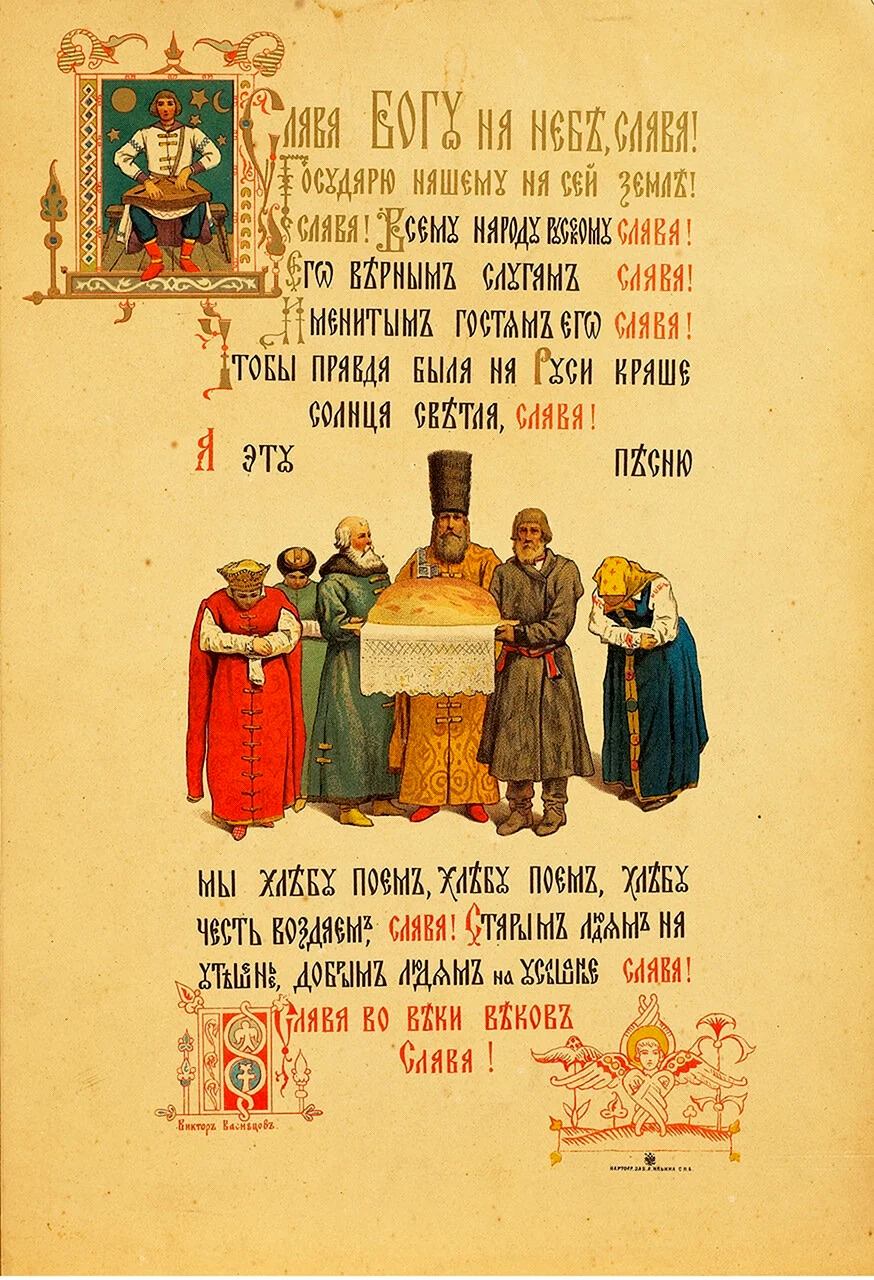 Слава Богу на небѣ, слава!
Государю нашему на сей землѣ!
Слава! Всему народу русскому слава!
Его вѣрнымъ слугамъ слава!
Именитымъ гостямъ его слава!
Чтобы правда была на Руси краше
солнца свѣтла, слава!
А эту пѣсню
мы хлѣбу поемъ, хлѣбу поемъ, хлѣбу
честь воздаемъ, слава! Старымъ людямъ на
утѣшенье, добрымъ людямъ на услышенье слава!
Слава во вѣки вѣковъ
Слава!
Викторъ Васнецовъ.
КАРТОГР. ЗАВ. А. ИЛЬИНА С.П.Б.